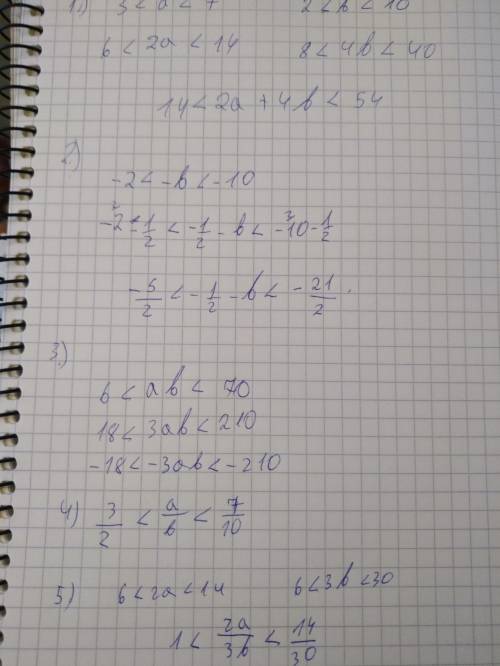 1) 3 < a < 7 2 < b < 10
6 < 2a < 14 8 < 4b < 40
14 < 2a + 4b < 54
2)
-2 < -b < -10
-2 - 1/2 < -1/2 - b < -10 - 1/2
-5/2 < -1/2 - b < -21/2.
3.)
6 < ab < 70
18 < 3ab < 210
-18 < -3ab < -210
4) 3/2 < a/b < 7/10
5) 6 < 2a < 14 6 < 3b < 30
1 < 2a/3b < 14/30